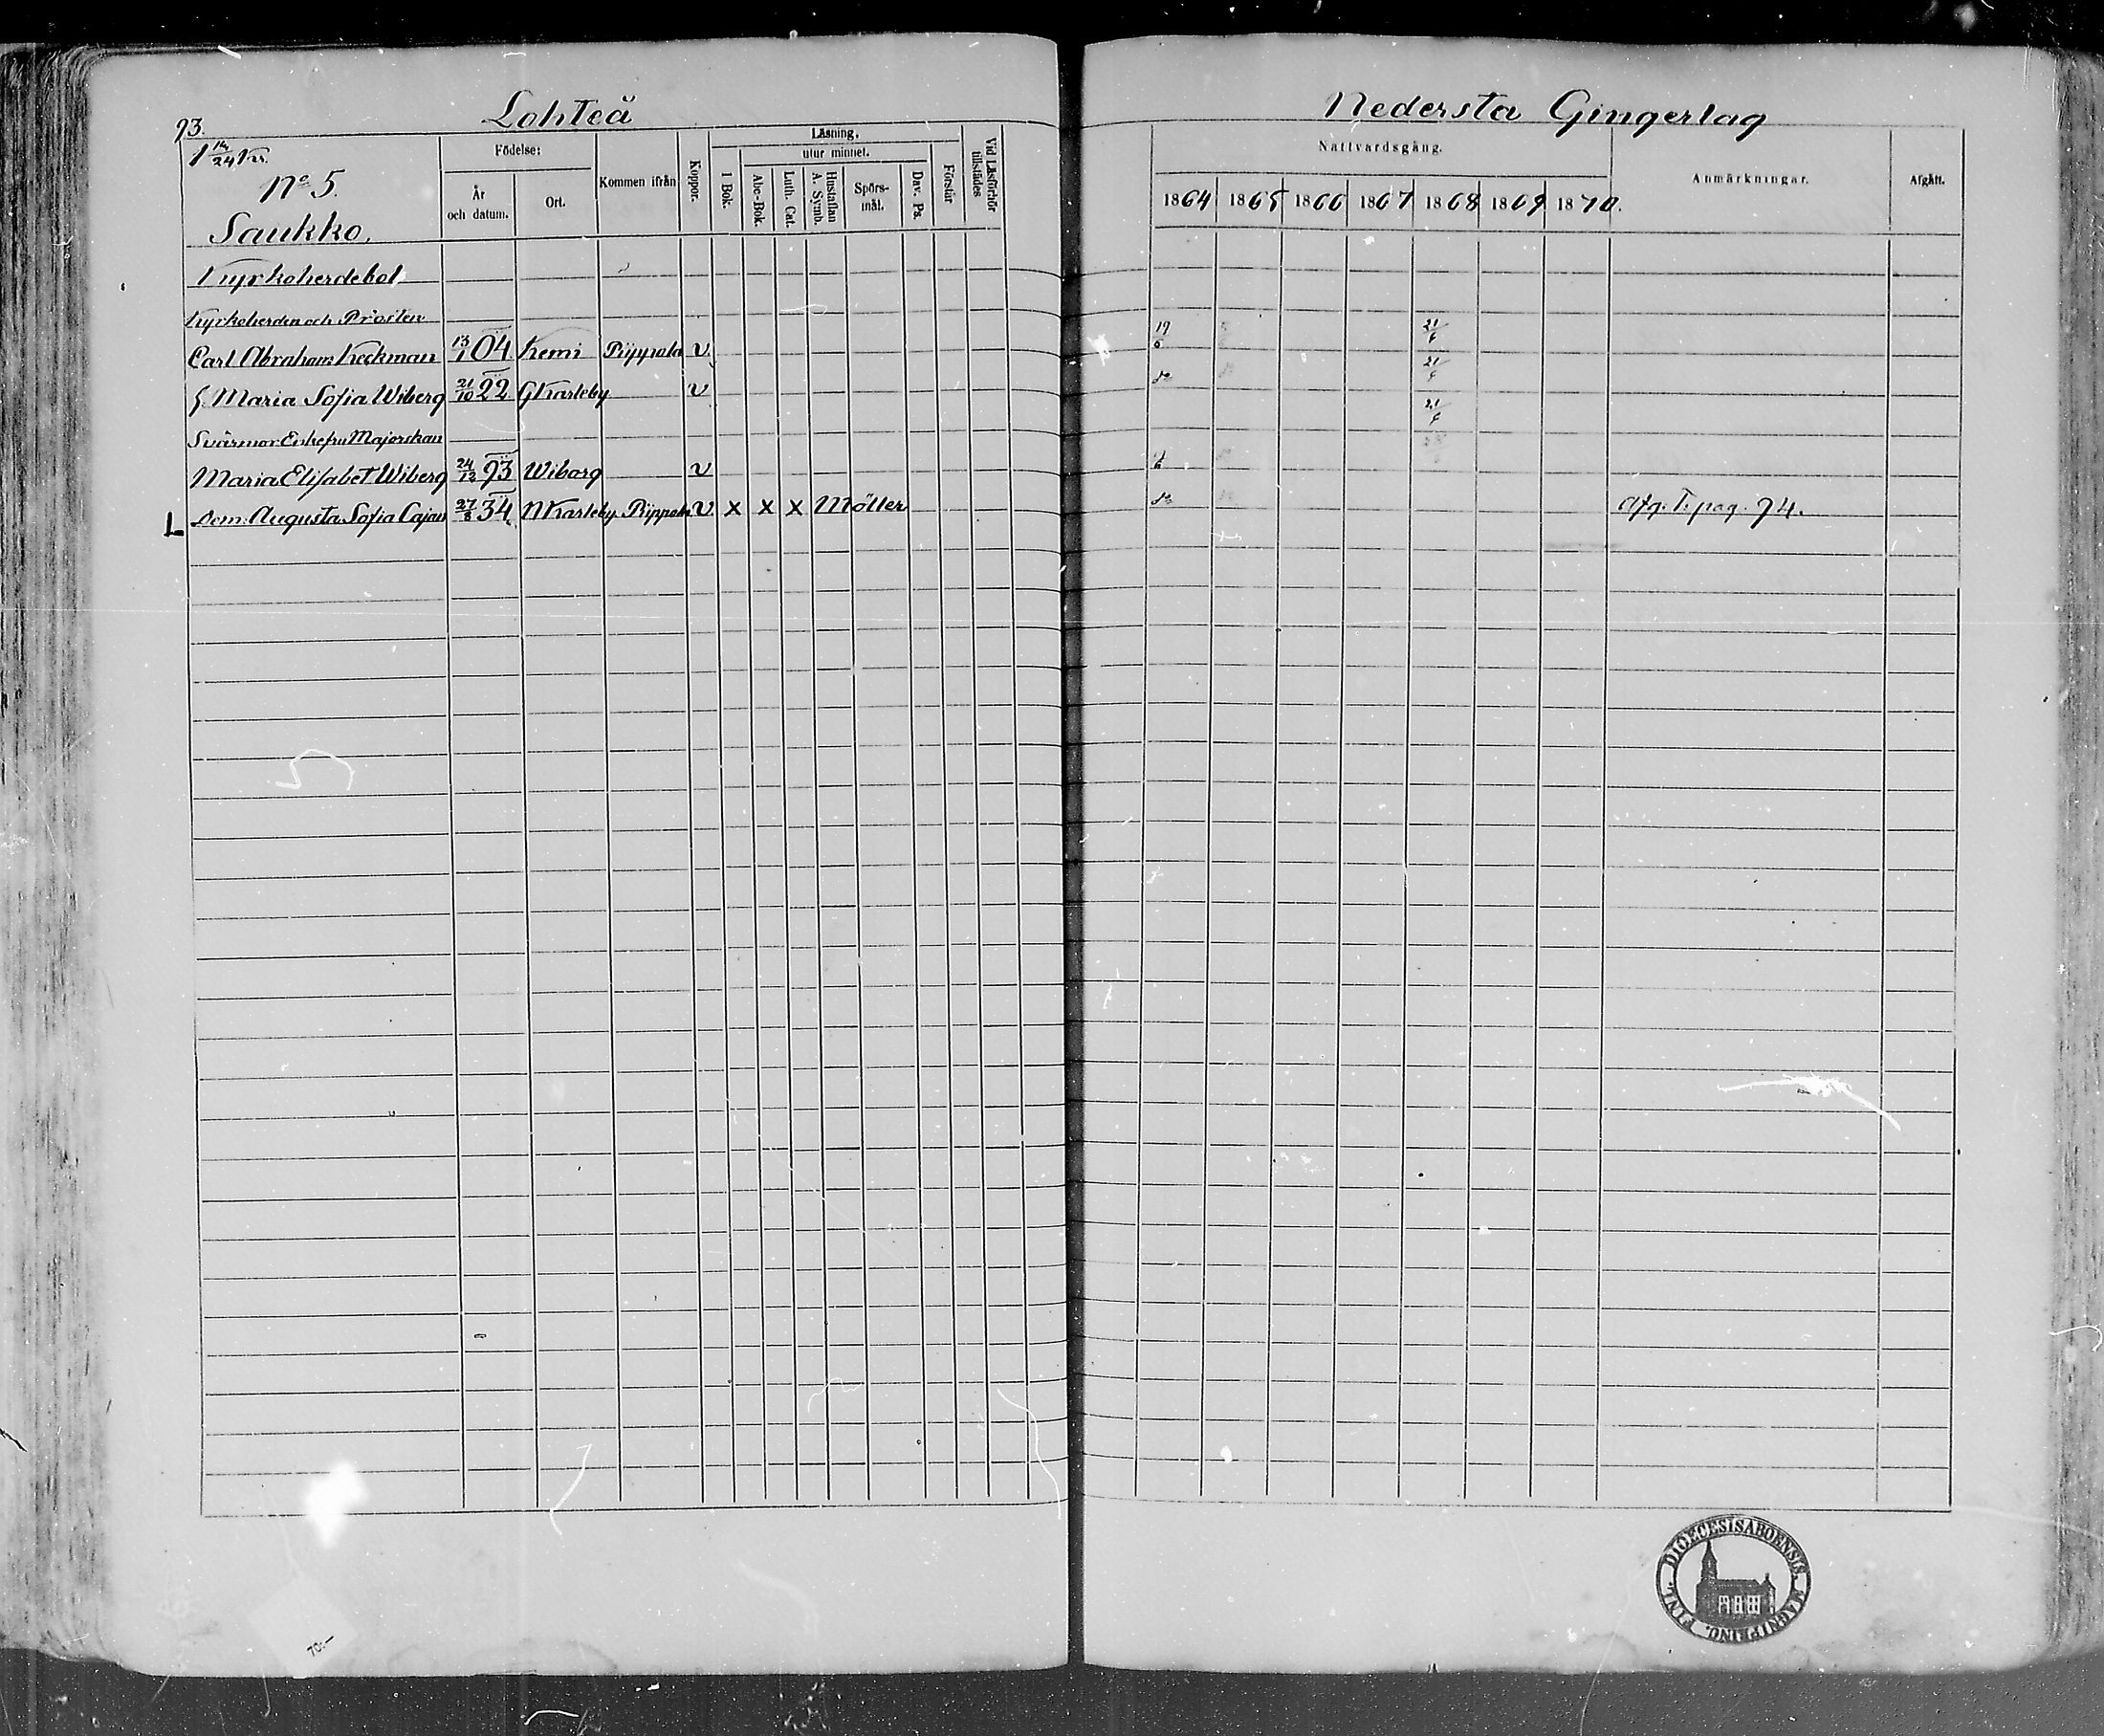 93.
Lohteå
Nedersta Gingerlag
1 14/24 Kr.
N:o 5.
Saukko.
Födelse:
År och datum.
Ort.
Kommen ifrån
Koppor.
Läsning.
I Bok.
utur minnet.
Abc-Bok.
Luth. Cat.
Hustaflan A. Symb.
Spörs-mål.
Dav. Ps.
Förstår
Vid Läsförhör tillstädes
Nattvardsgång.
1864 1865 1866 1867 1868 1869 1870.
Anmärkningar.
Afgått.
Kyrkoherdebol
Kyrkoherden och Prosten
Carl Abraham Keckman 13/1 04 Kemi Piippola v 19/6 21/6
H. Maria Sofia Wiberg 21/10 22 GKarleby v do 21/6
21/6
Svärmor Enkefru Majorskan
Maria Elisabet Wiberg 24/12 93 Wiborg v
Dem. Augusta Sofia Cajan 27/8 34 NKarleby Piippola v x x x Möller do Afg. T. pag. 94.
L
70:-
DIOECESIS ABOENSIS. MAGNI PRINC. FINL.